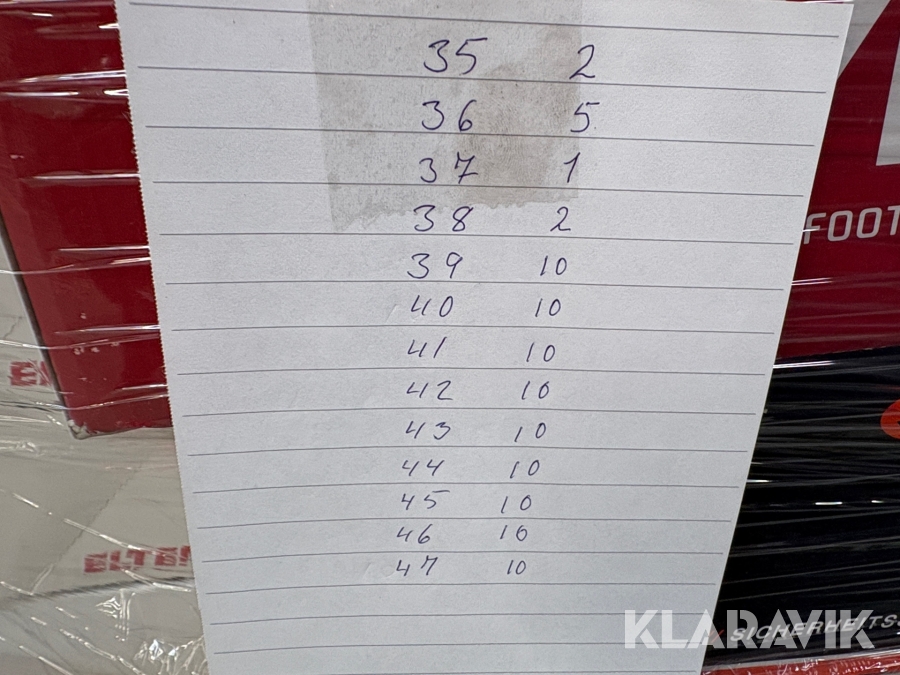 35 2
36 5
37 1
38 2
39 10
40 10
41 10
42 10
43 10
44 10
45 10
46 10
47 10
FOOT
KLARAVIK
SICHERHEITSS